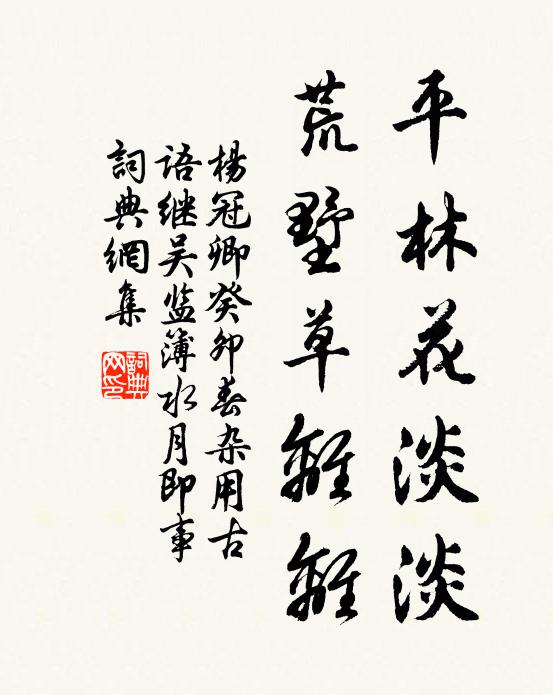 平林花淡淡
荒墅草離離
楊冠卿癸卯春杂用古
语继吴监簿水月即事
詞典網集
詞典网印